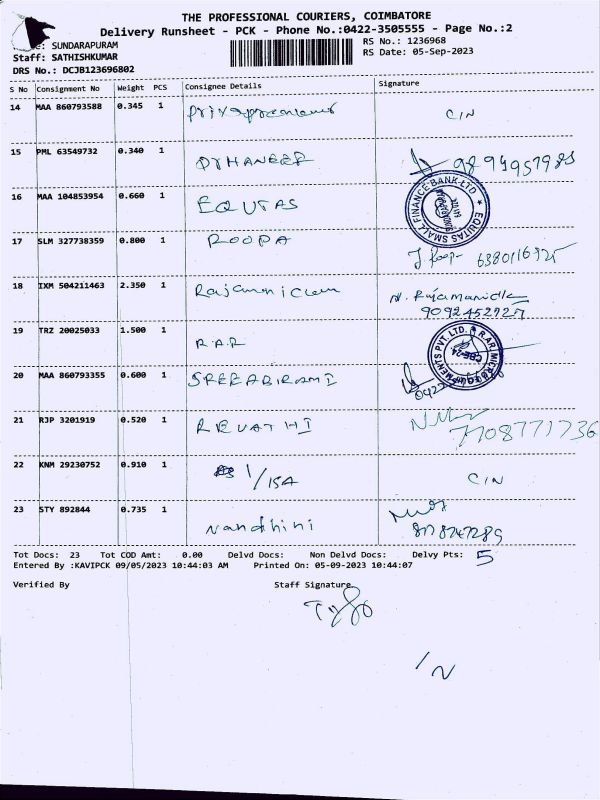 THE PROFESSIONAL COURIERS, COIMBATORE
Delivery Runsheet - PCK - Phone No.:0422-3505555 - Page No.:2
: SUNDARAPURAM
RS No.: 1236968
Staff: SATHISHKUMAR
RS Date: 05-Sep-2023
DRS No.: DCJB123696802
S No Consignment No Weight PCS Consignee Details Signature
14 MAA 860793588 0.345 1 CIN
15 PML 63549732 0.340 1 DYHANEER
16 MAA 104853954 0.660 1 EQUTAS
EQUITAS SMALL FINANCE BANK LTD
17 SLM 327738359 0.800 1 ROOPA
18 IXM 504211463 2.350 1
9092452727
19 TRZ 20025033 1.500 1 R.A.R
20 MAA 860793355 0.600 1 SREEABIRAMI
0422
21 RJP 3201919 0.520 1 REVATHI
7708771736
22 KNM 29230752 0.910 1 1/15A CIN
23 STY 892844 0.735 1 Nandhini
Tot Docs: 23 Tot COD Amt: 0.00 Delvd Docs: Non Delvd Docs: Delvy Pts: 5
Entered By :KAVIPCK 09/05/2023 10:44:03 AM Printed On: 05-09-2023 10:44:07
Verified By Staff Signature